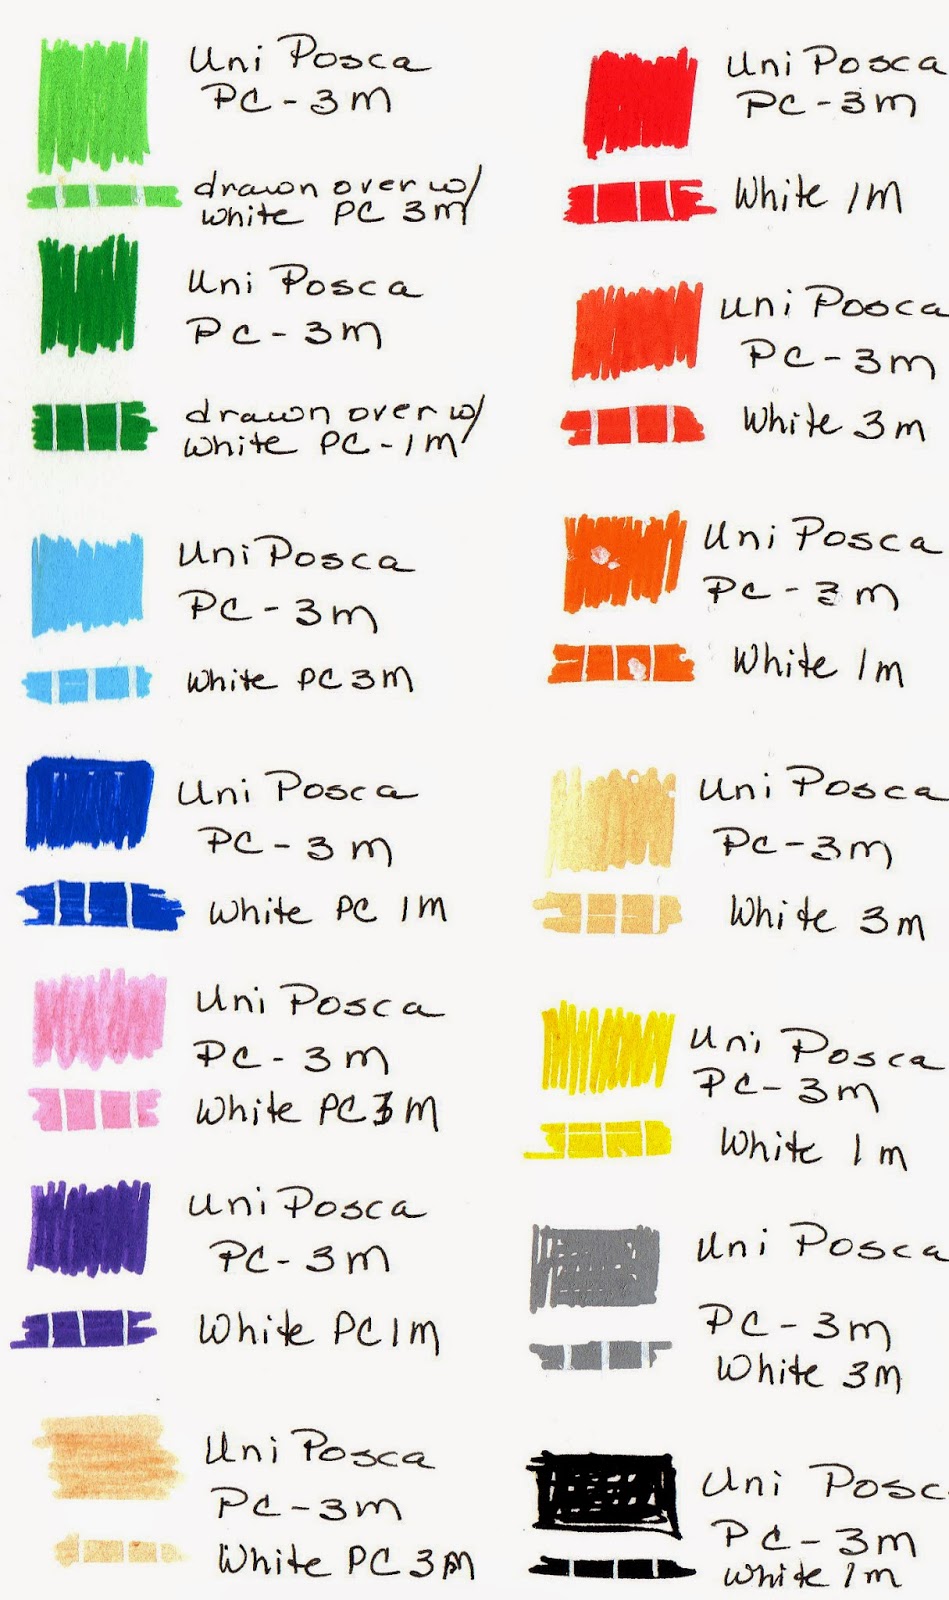 Uni Posca
PC-3M
drawn over w/
white PC 3M
Uni Posca
PC-3M
drawn over w/
White PC-1M
Uni Posca
PC-3M
White PC3M
Uni Posca
PC-3M
White PC 1M
Uni Posca
PC-3M
White PC3M
Uni Posca
PC-3M
White PC1M
Uni Posca
PC-3M
White PC 3M
Uni Posca
PC-3M
White 1M
Uni Posca
PC-3M
White 3M
Uni Posca
PC-3M
White 1M
Uni Posca
PC-3M
White 3M
Uni Posca
PC-3M
White 1M
Uni Posca
PC-3M
White 3M
Uni Posc
PC-3M
White 1M